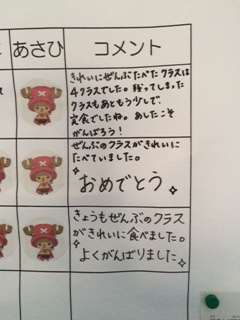 あさひ
コメント
きれいにぜんぶたべたクラスは
4クラスでした。残ってしまった
クラスもあともう少しで、
完食でしたね。あしたこそ
がんばろう!
ぜんぶのクラスがきれいに
たべていました。
おめでとう
きょうもぜんぶのクラス
がきれいに食べました。
よくがんばりました